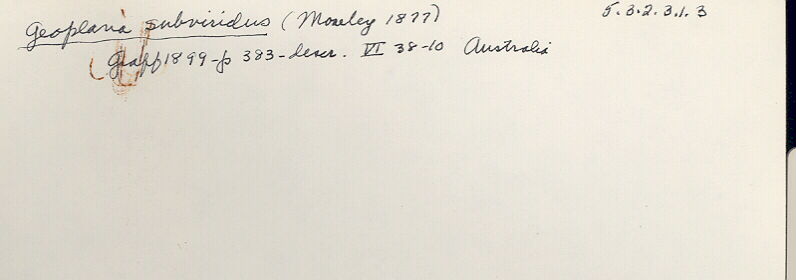 Geoplana subviridus (Moseley 1877) 5.3.2.3.1.3
Graff 1899-p 383-descr. VI 38-10 Australia